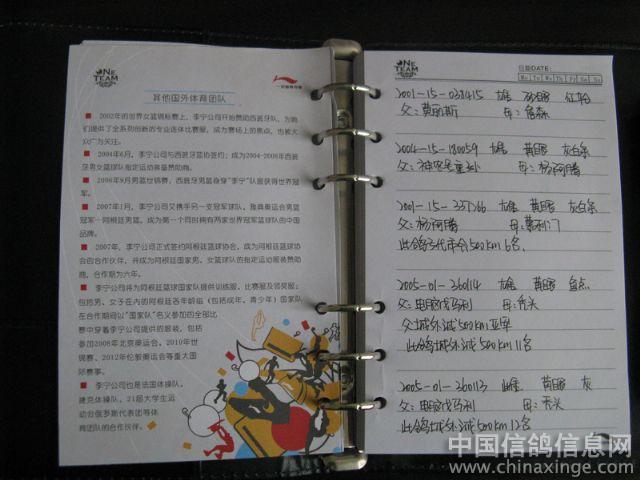 ONE
TEAM
一切皆有可能
其他国外体育团队
2002年的世界女篮锦标赛上，李宁公司开始赞助西班牙队，为她
们提供了全系列创新的专业连体比赛服，成为赛场上的焦点，也被大
众广为关注。
2004年6月，李宁公司与西班牙篮协签约；成为2004-2008年西班
牙男女篮球队指定运动装备赞助商。
2006年9月男篮世锦赛，西班牙男篮身穿“李宁”队服获得世界冠
军。
2007年1月，李宁公司又携手另一支冠军球队，雅典奥运会男篮
冠军—阿根廷男篮，成为第一个同时拥有两家世界冠军篮球队的中国
品牌。
2007年，李宁公司正式签约阿根廷篮球协会，成为阿根廷篮球协
会的合作伙伴，并成为阿根廷国家男、女篮球队的指定运动服装赞助
商，合作期为六年。
李宁公司将为阿根廷篮球国家队提供训练服、比赛服及领奖服；
包括男、女子在内的阿根廷各年龄组（包括成年、青少年）国家队
在合作期间以“国家队”名义参加的全部比
赛中穿着李宁公司提供的服装，包括
参加2008年北京奥运会、2010年世
锦赛、2012年伦敦奥运会等重大国
际赛事。
李宁公司也是法国体操队、
捷克体操队、21届大学生运
动会俄罗斯代表团等体
育团队的合作伙伴。
ONE
TEAM
日期DATE:
Mo Tu We Th Fr Sa Su
2001-15-032415 雄 砂眼 红轮
父：黄耐斯 母：詹森
2004-15-180059 雄 黄眼 灰白条
父：神农号重孙 母：杨阿腾
2001-15-335766 雄 黄眼 灰白条
父：杨阿腾 母：慕利门
此鸽子代市会500km 6名.
2005-01-260114 雄 黄眼 鱼点
父：电脑戈马利 母：秃头
父：城外诚500km亚军
此鸽城外诚500km 11名
2005-01-260113 雌 黄眼 灰
父：电脑戈马利 母：秃头
此鸽城外诚500km 12名
中国信鸽信息网
www.chinaxinge.com